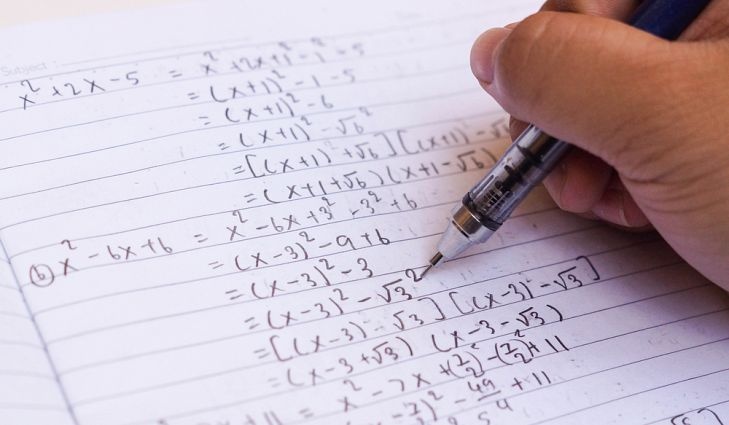 Subject
x² + 2x - 5 = x² + 2x + 1² - 1² - 5
= (x+1)² - 1 - 5
= (x+1)² - 6
= (x+1)² - √6²
= [(x+1) + √6] [(x+1) - √6
= (x+1+√6) (x+1-√6)
(b) x² - 6x + 6 = x² - 6x + 3² - 3² + 6
= (x-3)² - 9 + 6
= (x-3)² - 3
= (x-3)² - √3²
= [(x-3) - √3] [(x-3) - √3]
= (x-3+√3) (x-3-√3)
x + 11 = x² - 7x + (7/2)² - (7/2)² + 11
- 7/2)² - 49/4 + 11